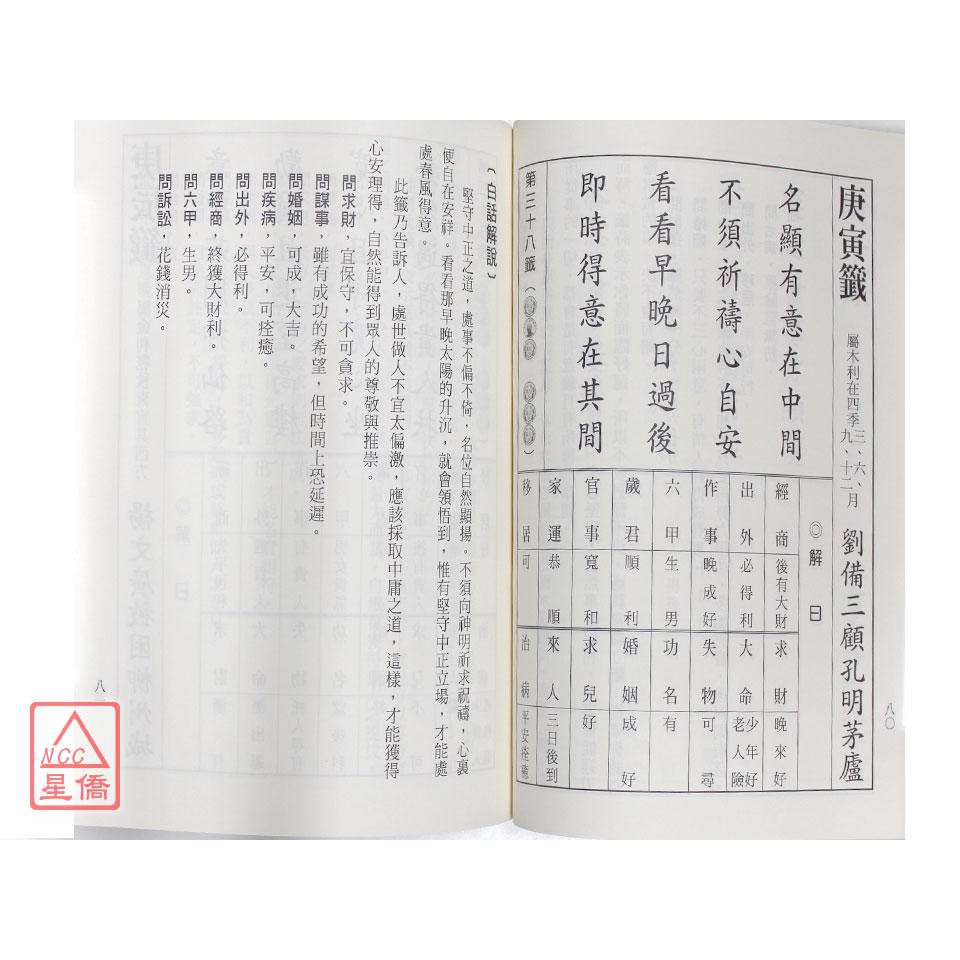 庚寅籤 屬木利在四季三、六、九、十二月 劉備三顧孔明茅廬
名顯有意在中間
不須祈禱心自安
看看早晚日過後
即時得意在其間
第三十八籤
◎解曰
經商 後有大財 求財 晚來好
出外 必得利 大命 少年好老人險
作事 晚成好 失物 可尋
六甲 生男 功名 有
歲君 順利 婚姻 成好
官事 寬和 求兒 好
家運 恭順 來人 三日後到
移居 可 治病 平安痊癒
八〇
(白話解說)
堅守中正之道，處事不偏不倚，名位自然顯揚。不須向神明祈求祝禱，心裏
便自在安祥。看看那早晚太陽的升沉，就會領悟到，惟有堅守中正立場，才能處
處春風得意。
此籤乃告訴人，處世做人不宜太偏激，應該採取中庸之道，這樣，才能獲得
心安理得，自然能得到眾人的尊敬與推崇。
問求財，宜保守，不可貪求。
問謀事，雖有成功的希望，但時間上恐延遲。
問婚姻，可成，大吉。
問疾病，平安，可痊癒。
問出外，必得利。
問經商，終獲大財利。
問六甲，生男。
問訴訟，花錢消災。
八一
NCC
星僑